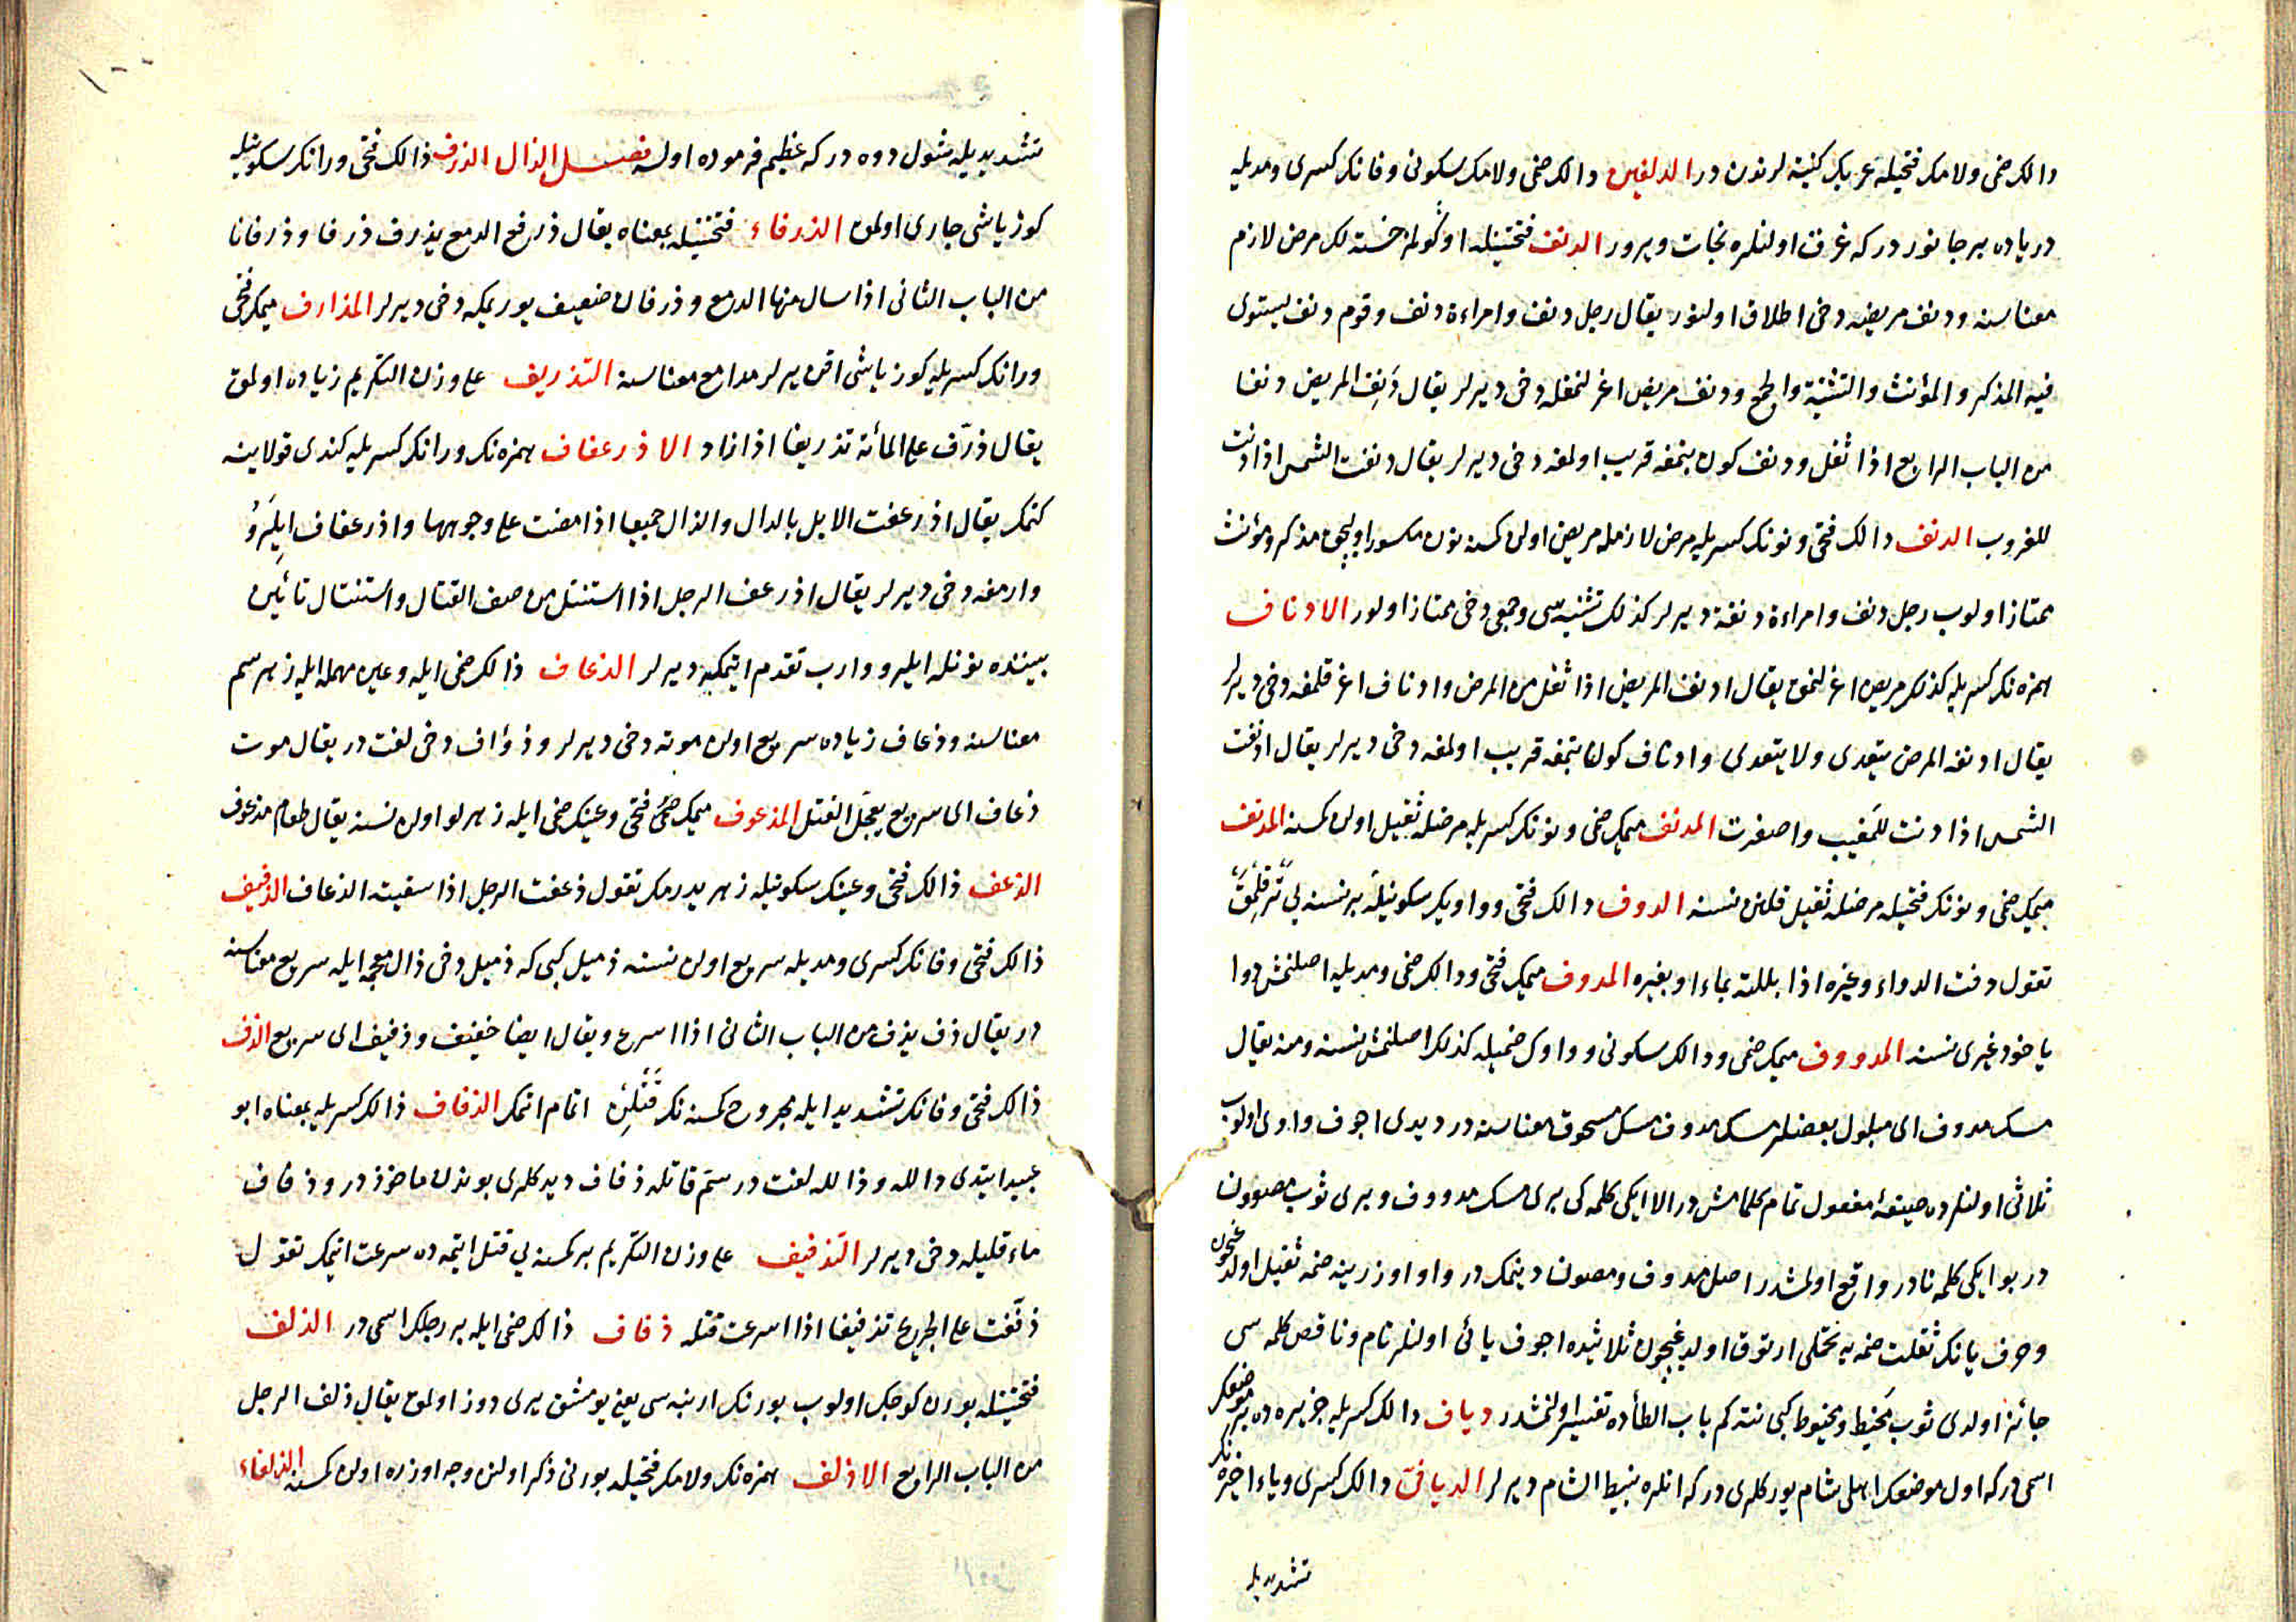 دالك ضمى ولامك فتحيله عربك كنيته لرندن در الدلفين دالك ضمى ولامك سكونى وفانك كسرى ومديله
درياده بر جانور در كه غرق اولنلره نجات ويرور الدنف فتحتينله اوكولمز خسته لك مرض لازم
معناسنه ودنف مريضه دخى اطلاق اولنور يقال رجل دنف وامراءة دنف وقوم دنف يستوى
فيه المذكر والمؤنث والتثنية والجمع ودنف مريض اغرلنمغله دخى ديرلر يقال دَنِف المريض دنفا
من الباب الرابع اذا ثقل ودنف كون بتمغه قريب اولمغه دخى ديرلر يقال دنفت الشمس اذا دنت
للغروب الدنف دالك فتحى ونونك كسريله مرض لازمله مريض اولن كمسنه نون مكسور اوليجق مذكر ومؤنث
ممتاز اولوب رجل دنف وامراءة دنفة ديرلر كذلك تثنيه سى وجمعى دخى ممتاز اولور الادناف
همزه نك كسريله كذلك مريض اغرلنمق يقال ادنف المريض اذا ثقل من المرض وادناف اغرقلمغه دخى ديرلر
يقال ادنفه المرض يتعدى ولا يتعدى وادناف كون بتمغه قريب اولمغه دخى ديرلر يقال ادنفت
الشمس اذا دنت للمغيب واصفرت المدنف ميمك ضمى ونونك كسريله مرضله ثقيل اولن كمسنه المدنف
ميمك ضمى ونونك فتحيله مرضله ثقيل قلنن نسنه الدوف دالك فتحى وواويك سكونيله بر نسنه يى تر قلمق
تقول دفت الدواء وغيره اذا بللته بماء او بغيره المدوف ميمك فتحى ودالك ضمى ومديله اصلنمش دوا
ياخود غيرى نسنه المدووف ميمك ضمى ودالك سكونى وواوك ضميله كذلك اصلنمش نسنه ومنه يقال
مسك مدوف اى مبلول بعضلر مسك مدوف مسك مسحوق معناسنه در ديدى اجوف واوى اولوب
ثلاثى اولنلرده صيغهٔ مفعول تمام كلمامش در الا ايكى كلمه كى برى مسك مدووف وبرى ثوب مصوون
در بو ايكى كلمه نادر واقع اولمشدر اصل مدوف ومصون دينمك در واو اوزرينه ضمه ثقيل اولديغيچون
وحرف يانك ثقلت ضمه يه تحملى ارتوق اولديغيچون ثلاثيده اجوف يائى اولنلر تام وناقص كلمه سى
جائز اولدى ثوب مَخيط ومخيوط كبى نته كم باب الطاده تفسير اولنمشدر دياف دالك كسريله جزيره ده بر موضعك
اسمى در كه اول موضعك اهلى شام يوركلرى در كه انلره نبيط الشام ديرلر الديافى دالك كسرى وياء اخيره نك
تشديديله
تشديديله شول دوه در كه عظيم فرموده اوله فصل الذال الذرف ذالك فتحى ورانك سكونيله
كوز ياشى جارى اولمق الذرفاء فتحتينله بمعناه يقال ذرفع الدمع يذرف ذرفا وذرفانا
من الباب الثانى اذا سال منها الدمع وذرفان ضعيف يوريمكه دخى ديرلر المذارف ميمك فتحى
ورانك كسريله كوز ياشى اقن يرلر مدامع معناسنه التذريف على وزن التكريم زياده اولمق
يقال ذرّف على المائة تذريفا اذا زاد الاذرعفاف همزه نك ورانك كسريله كندى قولاينه
كتمك يقال اذرعفت الابل بالدال والذال جميعا اذا مضت على وجوهها واذرعفاف ايلَرو
وارمغه دخى ديرلر يقال اذرعف الرجل اذا استنتل من صف القتال واستنتال تائين
بيننده نونله ايلرو وارب تقدم ايتمكه ديرلر الذعاف ذالك ضمى ايله وعين مهمله ايله زهر سم
معناسنه وذعاف زياده سريع اولن موته دخى ديرلر وذؤاف دخى لغت در يقال موت
ذعاف اى سريع يعجّل القتل المذعوف ميمك فتحى وعينك ضمى ايله زهرلو اولن نسنه يقال طعام مذعوف
الذعف ذالك فتحى وعينك سكونيله زهر يدرمك تقول ذعفت الرجل اذا سقيته الذعاف الذفيف
ذالك فتحى وفانك كسرى ومديله سريع اولن نسنه ذميل كبى كه ذميل دخى ذال معجمه ايله سريع معناسنه
در يقال ذف يذف من الباب الثانى اذا اسرع ويقال ايضا خفيف وذفيف اى سريع الذف
ذالك فتحى وفانك تشديدى ايله مجروح كمسنه نك قتلين اتمام اتمك الذفاف ذالك كسريله بمعناه ابو
عبيد ايتدى دالله وذالله لغت در سَم قاتله ذفاف ديدكلرى بوندن ماخوذ در وذفاف
ماء قليله دخى ديرلر التذفيف على وزن التكريم بر كمسنه يى قتل ايتمه ده سرعت ايتمك تقول
ذفّفت على الجريح تذفيفا اذا اسرعت قتله ذفاف ذالك ضمى ايله بر رجلك اسمى در الذلف
فتحتينله بورن كوچك اولوب بورنك ارنبه سى يعنى يومشق يرى دوز اولمق يقال ذلف الرجل
من الباب الرابع الاذلف همزه نك ولامك فتحيله بورنى ذكر اولنن وجه اوزره اولن كمسنه الذلفاء